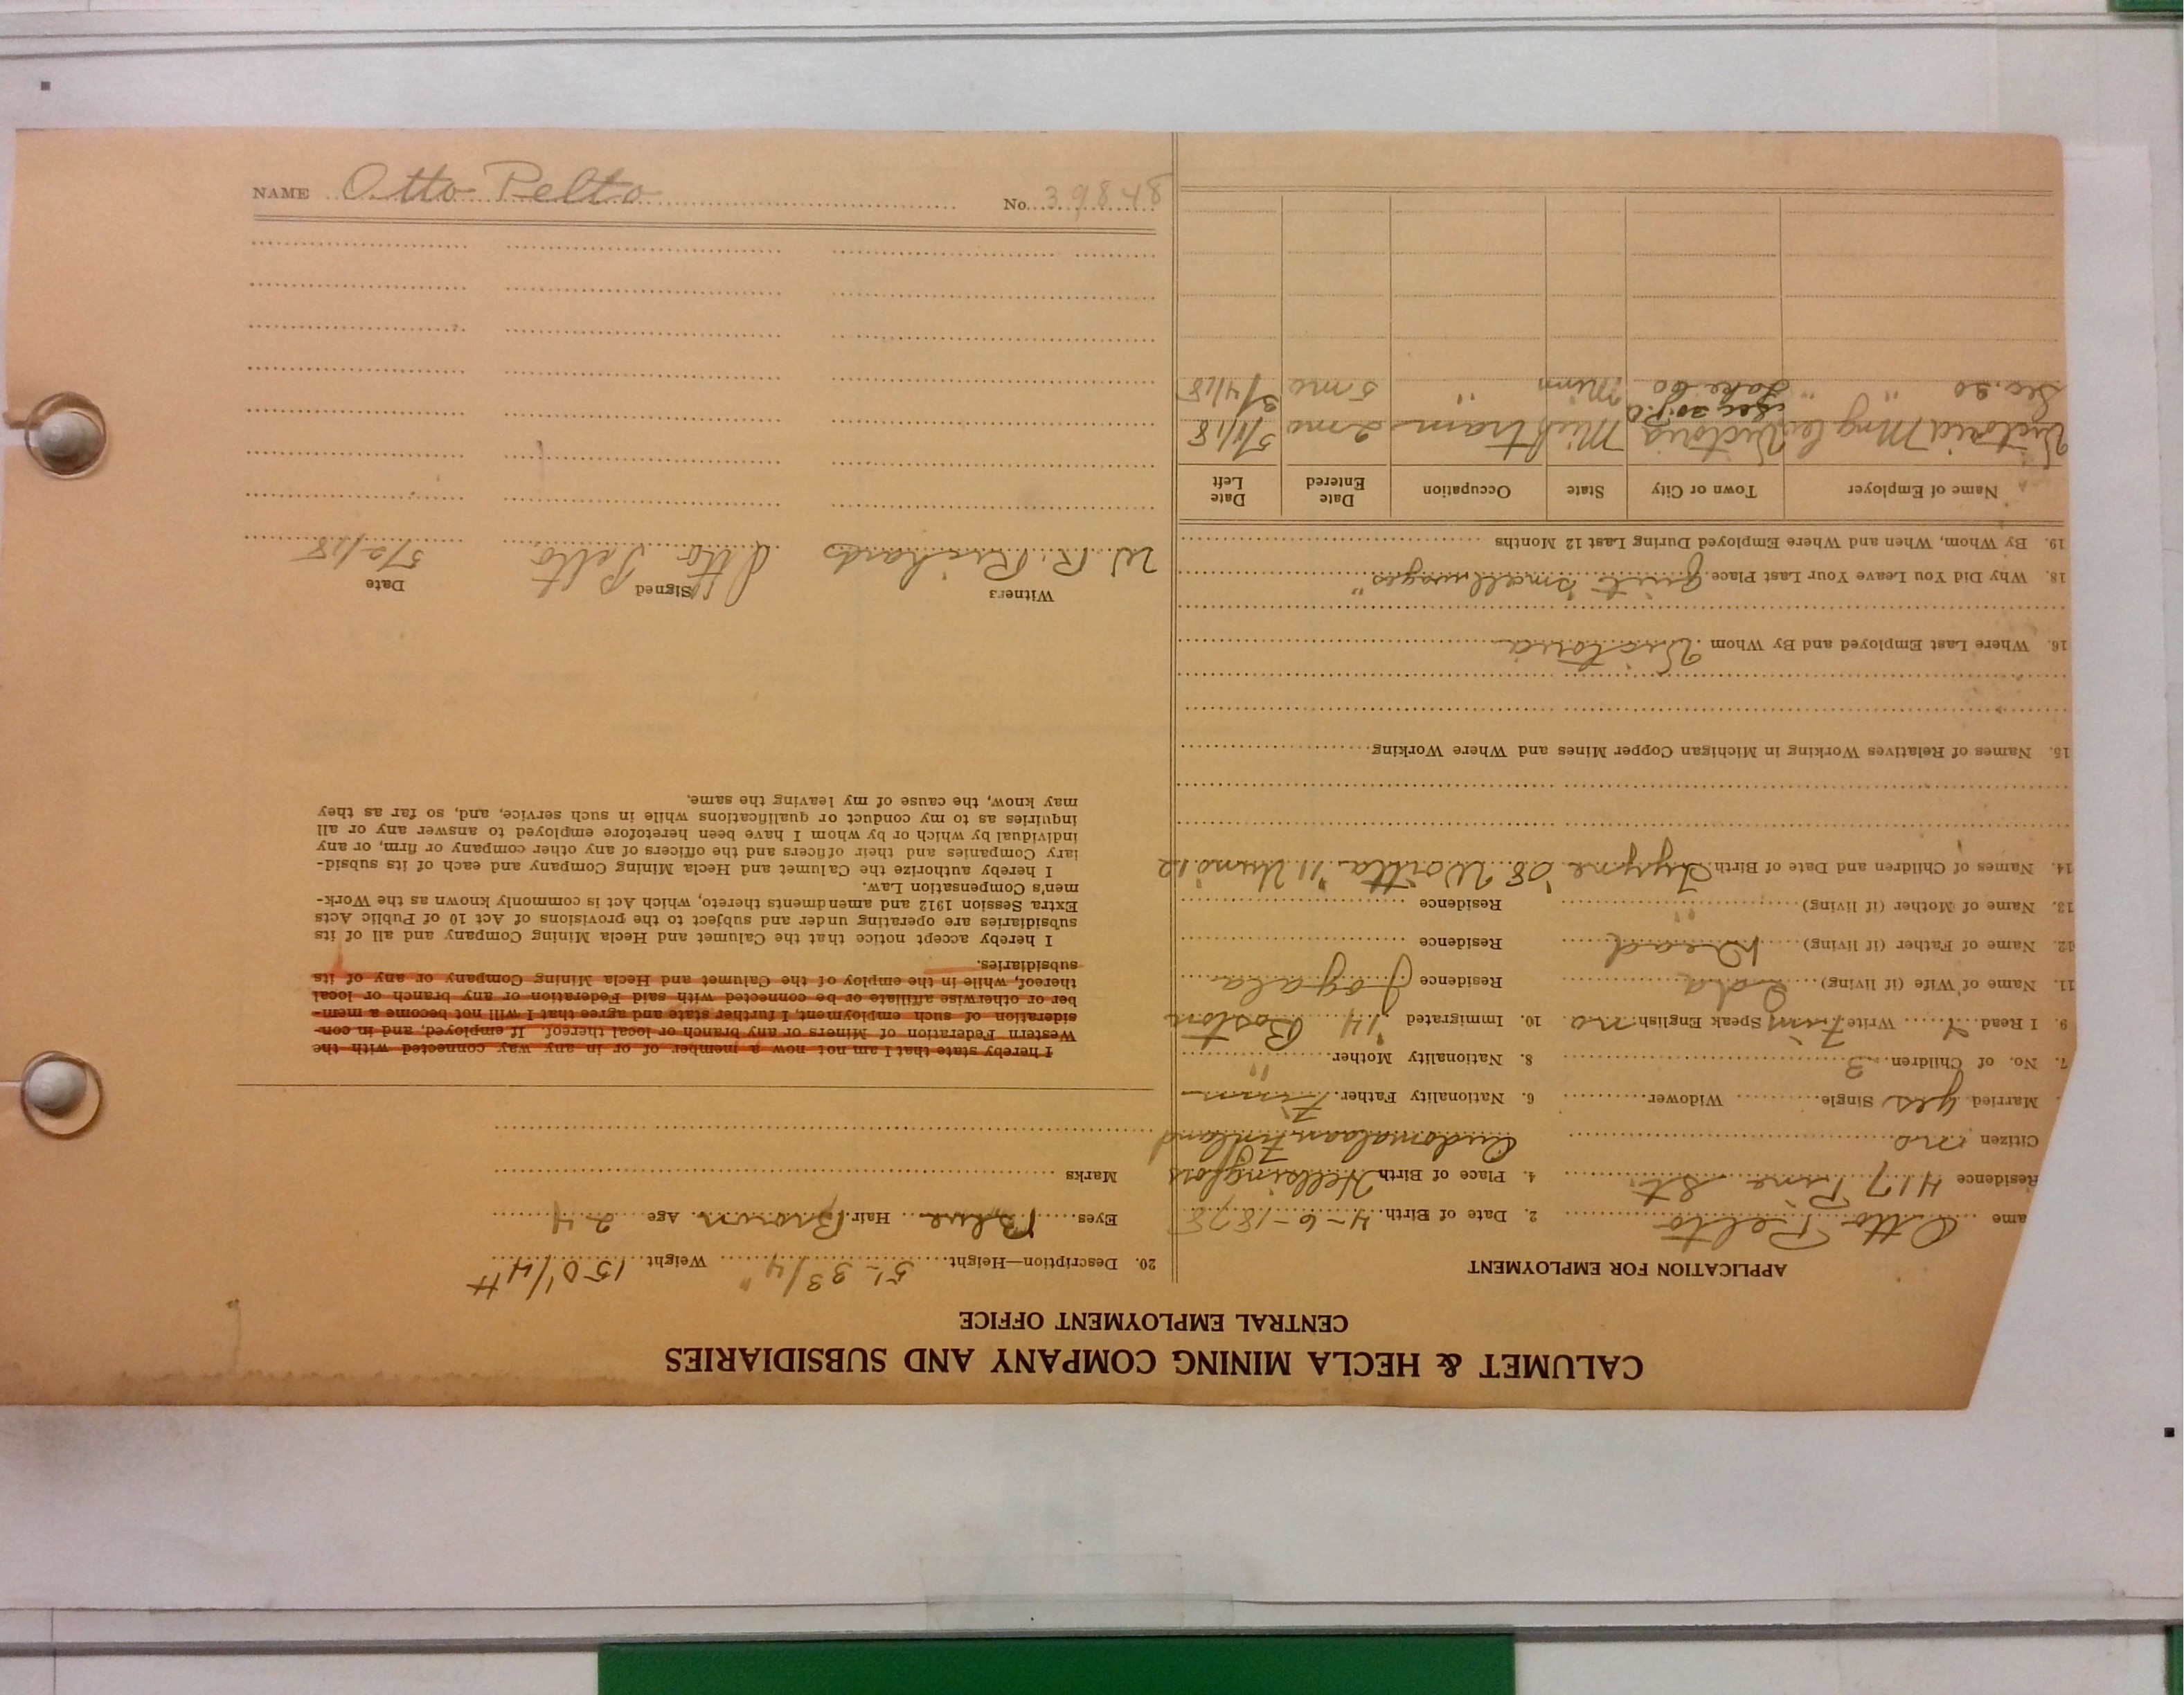 CALUMET & HECLA MINING COMPANY AND SUBSIDIARIES
CENTRAL EMPLOYMENT OFFICE
APPLICATION FOR EMPLOYMENT
ame Otto Pelto 2. Date of Birth 4-6-1878
Residence 417 Pine St. 4. Place of Birth Helsingfors
Citizen no Finland
Married yes Single Widower 6. Nationality Father Finn
7. No. of Children 3 8. Nationality Mother "
9. I Read Write Finn Speak English no 10. Immigrated '14 Boston
11. Name of Wife (if living) Ida Residence
12. Name of Father (if living) Dead Residence
13. Name of Mother (if living) " Residence
14. Names of Children and Date of Birth '08 '11 Urno 12
15. Names of Relatives Working in Michigan Copper Mines and Where Working
16. Where Last Employed and By Whom Victoria
18. Why Did You Leave Your Last Place quit "small wages"
19. By Whom, When and Where Employed During Last 12 Months
Name of Employer Town or City State Occupation Date Entered Date Left
Victoria Mng Co Victoria Mich tram 2 mo 5/1/18
Sec. 30 P.O.
Sec. 30 " Lake Co Minn " 5 mo 3/4/18
20. Description—Height 5'-3 3/4" Weight 150 1/4 #
Eyes Blue Hair Brown Age 24
Marks
I hereby state that I am not now a member of or in any way connected with the
Western Federation of Miners or any branch or local thereof. If employed, and in con-
sideration of such employment, I further state and agree that I will not become a mem-
ber or otherwise affiliate or be connected with said Federation or any branch or local
thereof, while in the employ of the Calumet and Hecla Mining Company or any of its
subsidiaries.
I hereby accept notice that the Calumet and Hecla Mining Company and all of its
subsidiaries are operating under and subject to the provisions of Act 10 of Public Acts
Extra Session 1912 and amendments thereto, which Act is commonly known as the Work-
men's Compensation Law.
I hereby authorize the Calumet and Hecla Mining Company and each of its subsid-
iary Companies and their officers and the officers of any other company or firm, or any
individual by which or by whom I have been heretofore employed to answer any or all
inquiries as to my conduct or qualifications while in such service, and, so far as they
may know, the cause of my leaving the same.
Witness Signed Date
W. R. Richards Otto Pelto 5/2/18
NAME Otto Pelto No. 39848